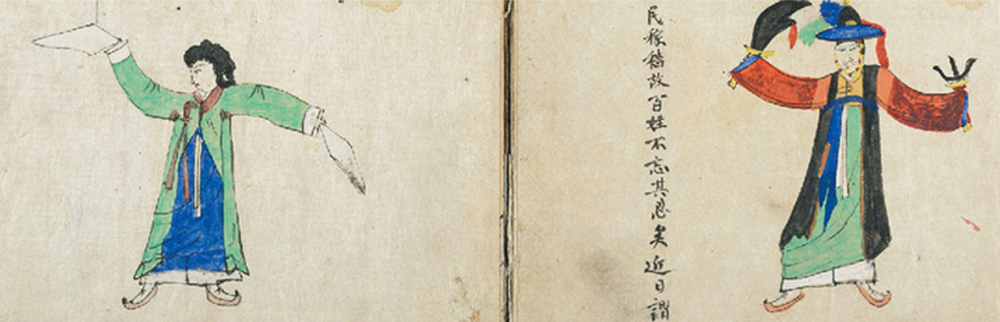 民稼穡故百姓不忘其恩矣近日謂